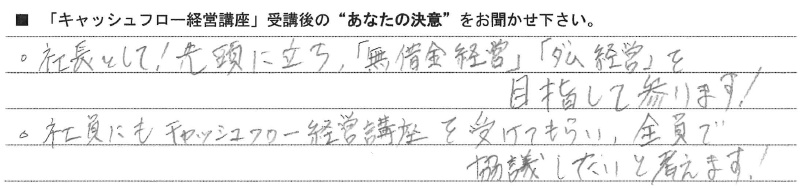 ■ 「キャッシュフロー経営講座」受講後の“あなたの決意”をお聞かせ下さい。
。社長として!先頭に立ち、「無借金経営」「ダム経営」を
目指して参ります!
。社員にもキャッシュフロー経営講座を受けてもらい、全員で
協議したいと考えます!